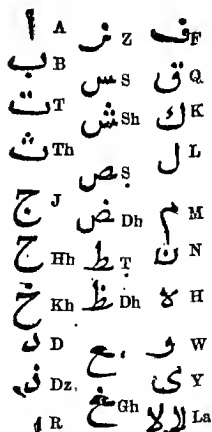 ا A
ب B
ت T
ث Th
ج J
ج Hh
خ Kh
د D
ذ Dz.
ر R
ز Z
س S
ش Sh
ص Ṣ
ض Dh
ط Ṭ
ظ Dh
ع ‘
غ Gh
ف F
ق Q
ك K
ل L
م M
ن N
ه H
و W
ى Y
لا لا La